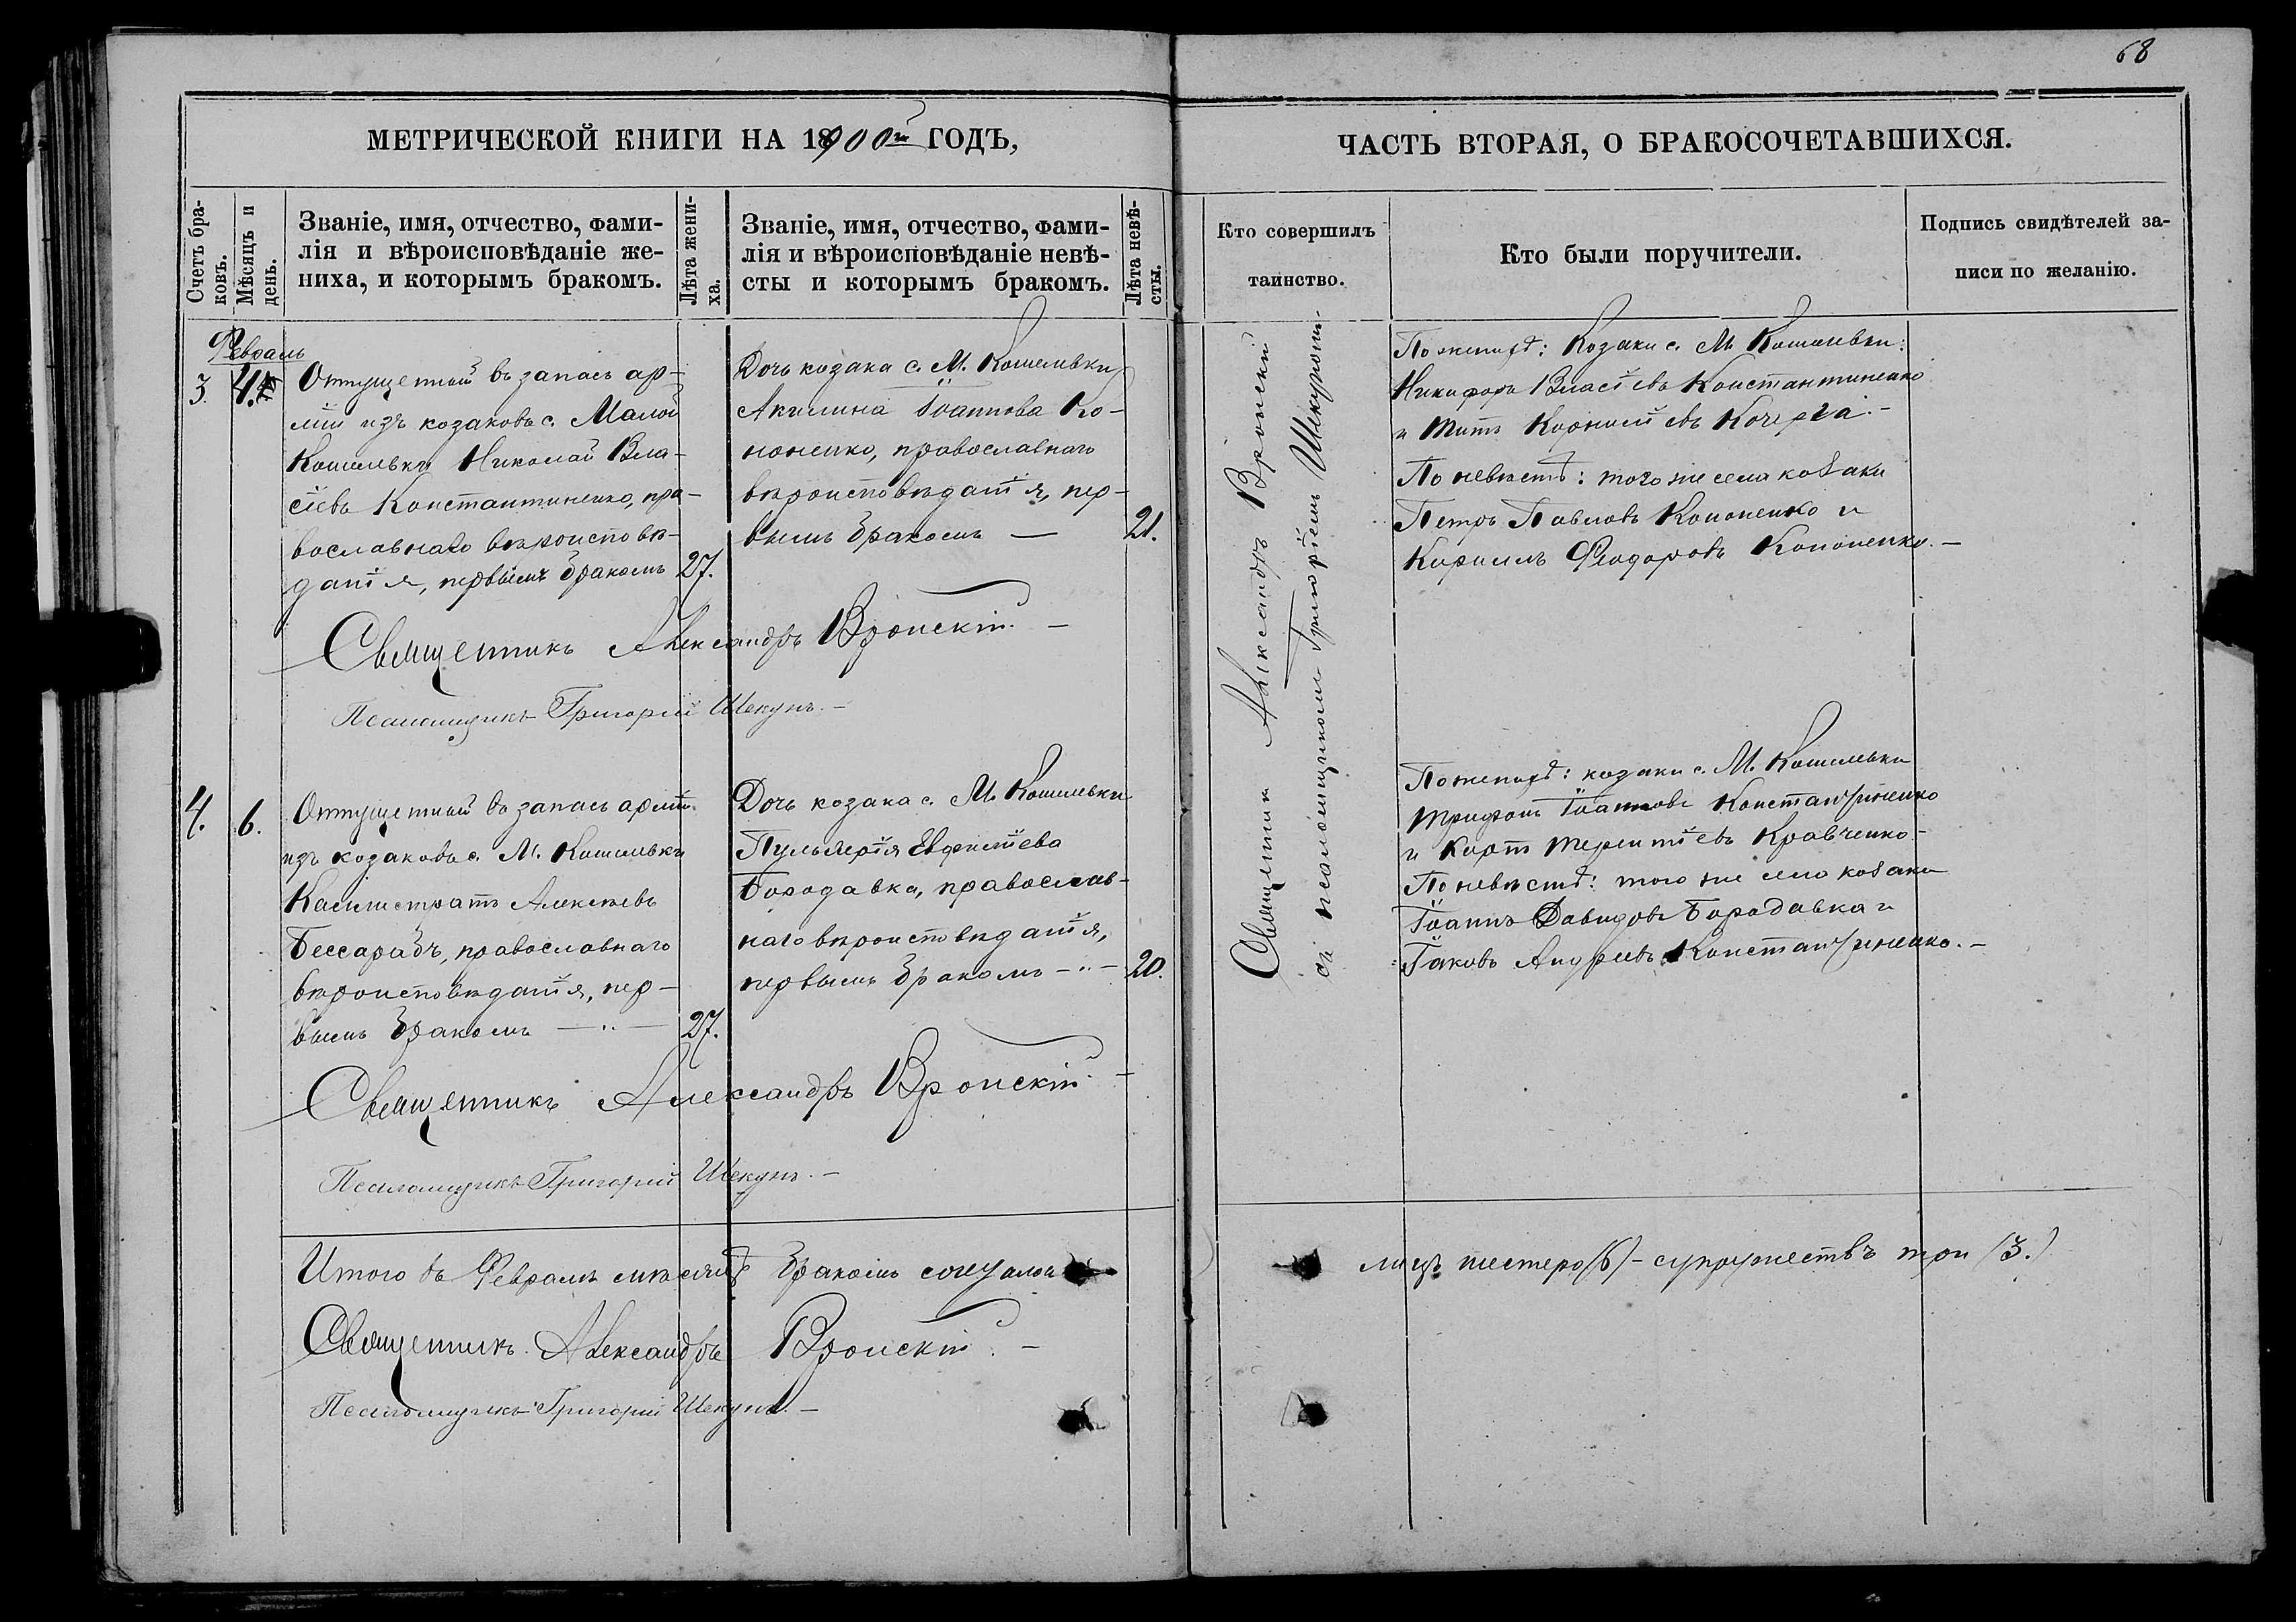 68
МЕТРИЧЕСКОЙ КНИГИ НА 1900й ГОДЪ,
ЧАСТЬ ВТОРАЯ, О БРАКОСОЧЕТАВШИХСЯ.
Счетъ бра-
ковъ.
Мѣсяцъ и
день.
Званіе, имя, отчество, фами-
лія и вѣроисповѣданіе же-
ниха, и которымъ бракомъ.
Лѣта жени-
ха.
Званіе, имя, отчество, фами-
лія и вѣроисповѣданіе невѣ-
сты и которымъ бракомъ.
Лѣта невѣ-
сты.
Кто совершилъ
таинство.
Кто были поручители.
Подпись свидѣтелей за-
писи по желанію.
Февраль
3.
4.
Отпущенный въ запасъ ар-
міи изъ козаковъ с. Малой
Кошелевки Николай Вла-
сіевъ Константиненко, пра-
вославнаго вѣроисповѣ-
данія, первымъ бракомъ
27.
Дочь козака с. М. Кошелевки
Акилина Іоаннова Ко-
ноненко, православнаго
вѣроисповѣданія, пер-
вымъ бракомъ —
21.
Священникъ Александръ Вронскій
съ псаломщикомъ Григоріемъ Шекуномъ.
По женихѣ: Козаки с. М. Кошелевки:
Никифоръ Власіевъ Константиненко
и Титъ Корниліевъ Кочерга.-
По невѣстѣ: того же села козаки
Петръ Павловъ Кононенко и
Кириллъ Феодоровъ Кононенко.-
Священникъ Александръ Вронскій. -
Псаломщикъ Григорій Шекунъ.-
4.
6.
Отпущенный въ запасъ арміи
изъ козаковъ с. М. Кошелевки
Каллистратъ Алексѣевъ
Бессарабъ, православнаго
вѣроисповѣданія, пер-
вымъ бракомъ — " —
27.
Дочь козака с. М. Кошелевки
Пульхерія Евфиміева
Бородавка, православ-
наго вѣроисповѣданія,
первымъ бракомъ - " -
20.
По женихѣ: козаки с. М. Кошелевки
Трифонъ Іоанновъ Константиненко
и Карпъ Терентіевъ Кравченко-
По невѣстѣ: того же села козаки
Іоаннъ Давидовъ Бородавка и
Іаковъ Андреевъ Константиненко.-
Священникъ Александръ Вронскій. -
Псаломщикъ Григорій Шекунъ.-
Итого въ Февралѣ мѣсяцѣ бракомъ сочеталось лицъ шестеро (6) - супружествъ три (3.)
Священникъ Александръ Вронскій. -
Псаломщикъ Григорій Шекунъ.-